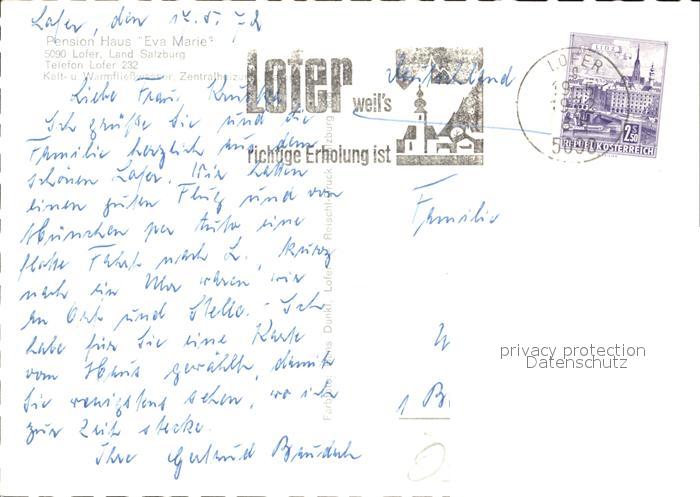 Lofer, den 17.5.72
Pension Haus "Eva Marie"
5090 Lofer, Land Salzburg
Telefon Lofer 232
Kalt- u. Warmfließwasser, Zentralheizung
Lofer
weil's
richtige Erholung ist
Deutschland
LINZ
2.50
REPUBLIK ÖSTERREICH
LOFER
5090
Liebe Frau
Ich grüße Sie und die
Familie herzlich aus dem
schönen Lofer. Wir hatten
einen guten Flug und von
München per Auto eine
flotte Fahrt nach L. Kurz
nach ein Uhr waren wir
an Ort und Stelle. - Ich
habe für Sie eine Karte
vom Haus gewählt, damit
Sie wenigstens sehen, wo ich
zur Zeit stecke.
Ihre Gertrud
Familie
1 B
privacy protection
Datenschutz